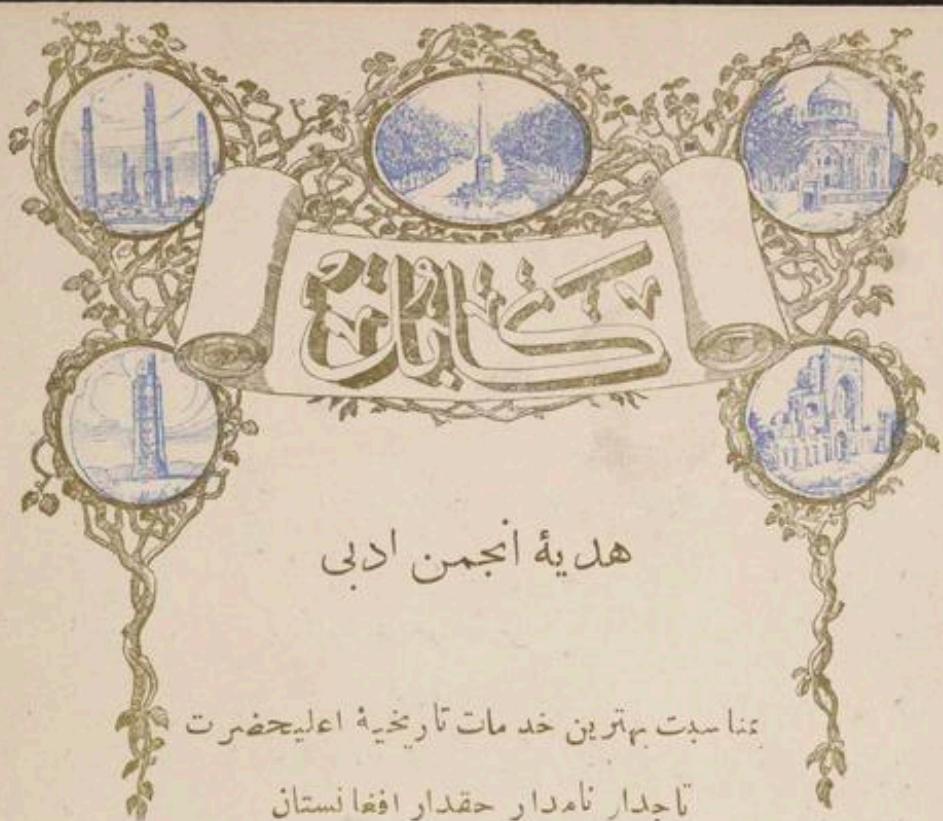 کابل
هدیهٔ انجمن ادبی
بمناسبت بهترین خدمات تاریخیهٔ اعلیحضرت
تاجدار نامدار حقدار افغانستان